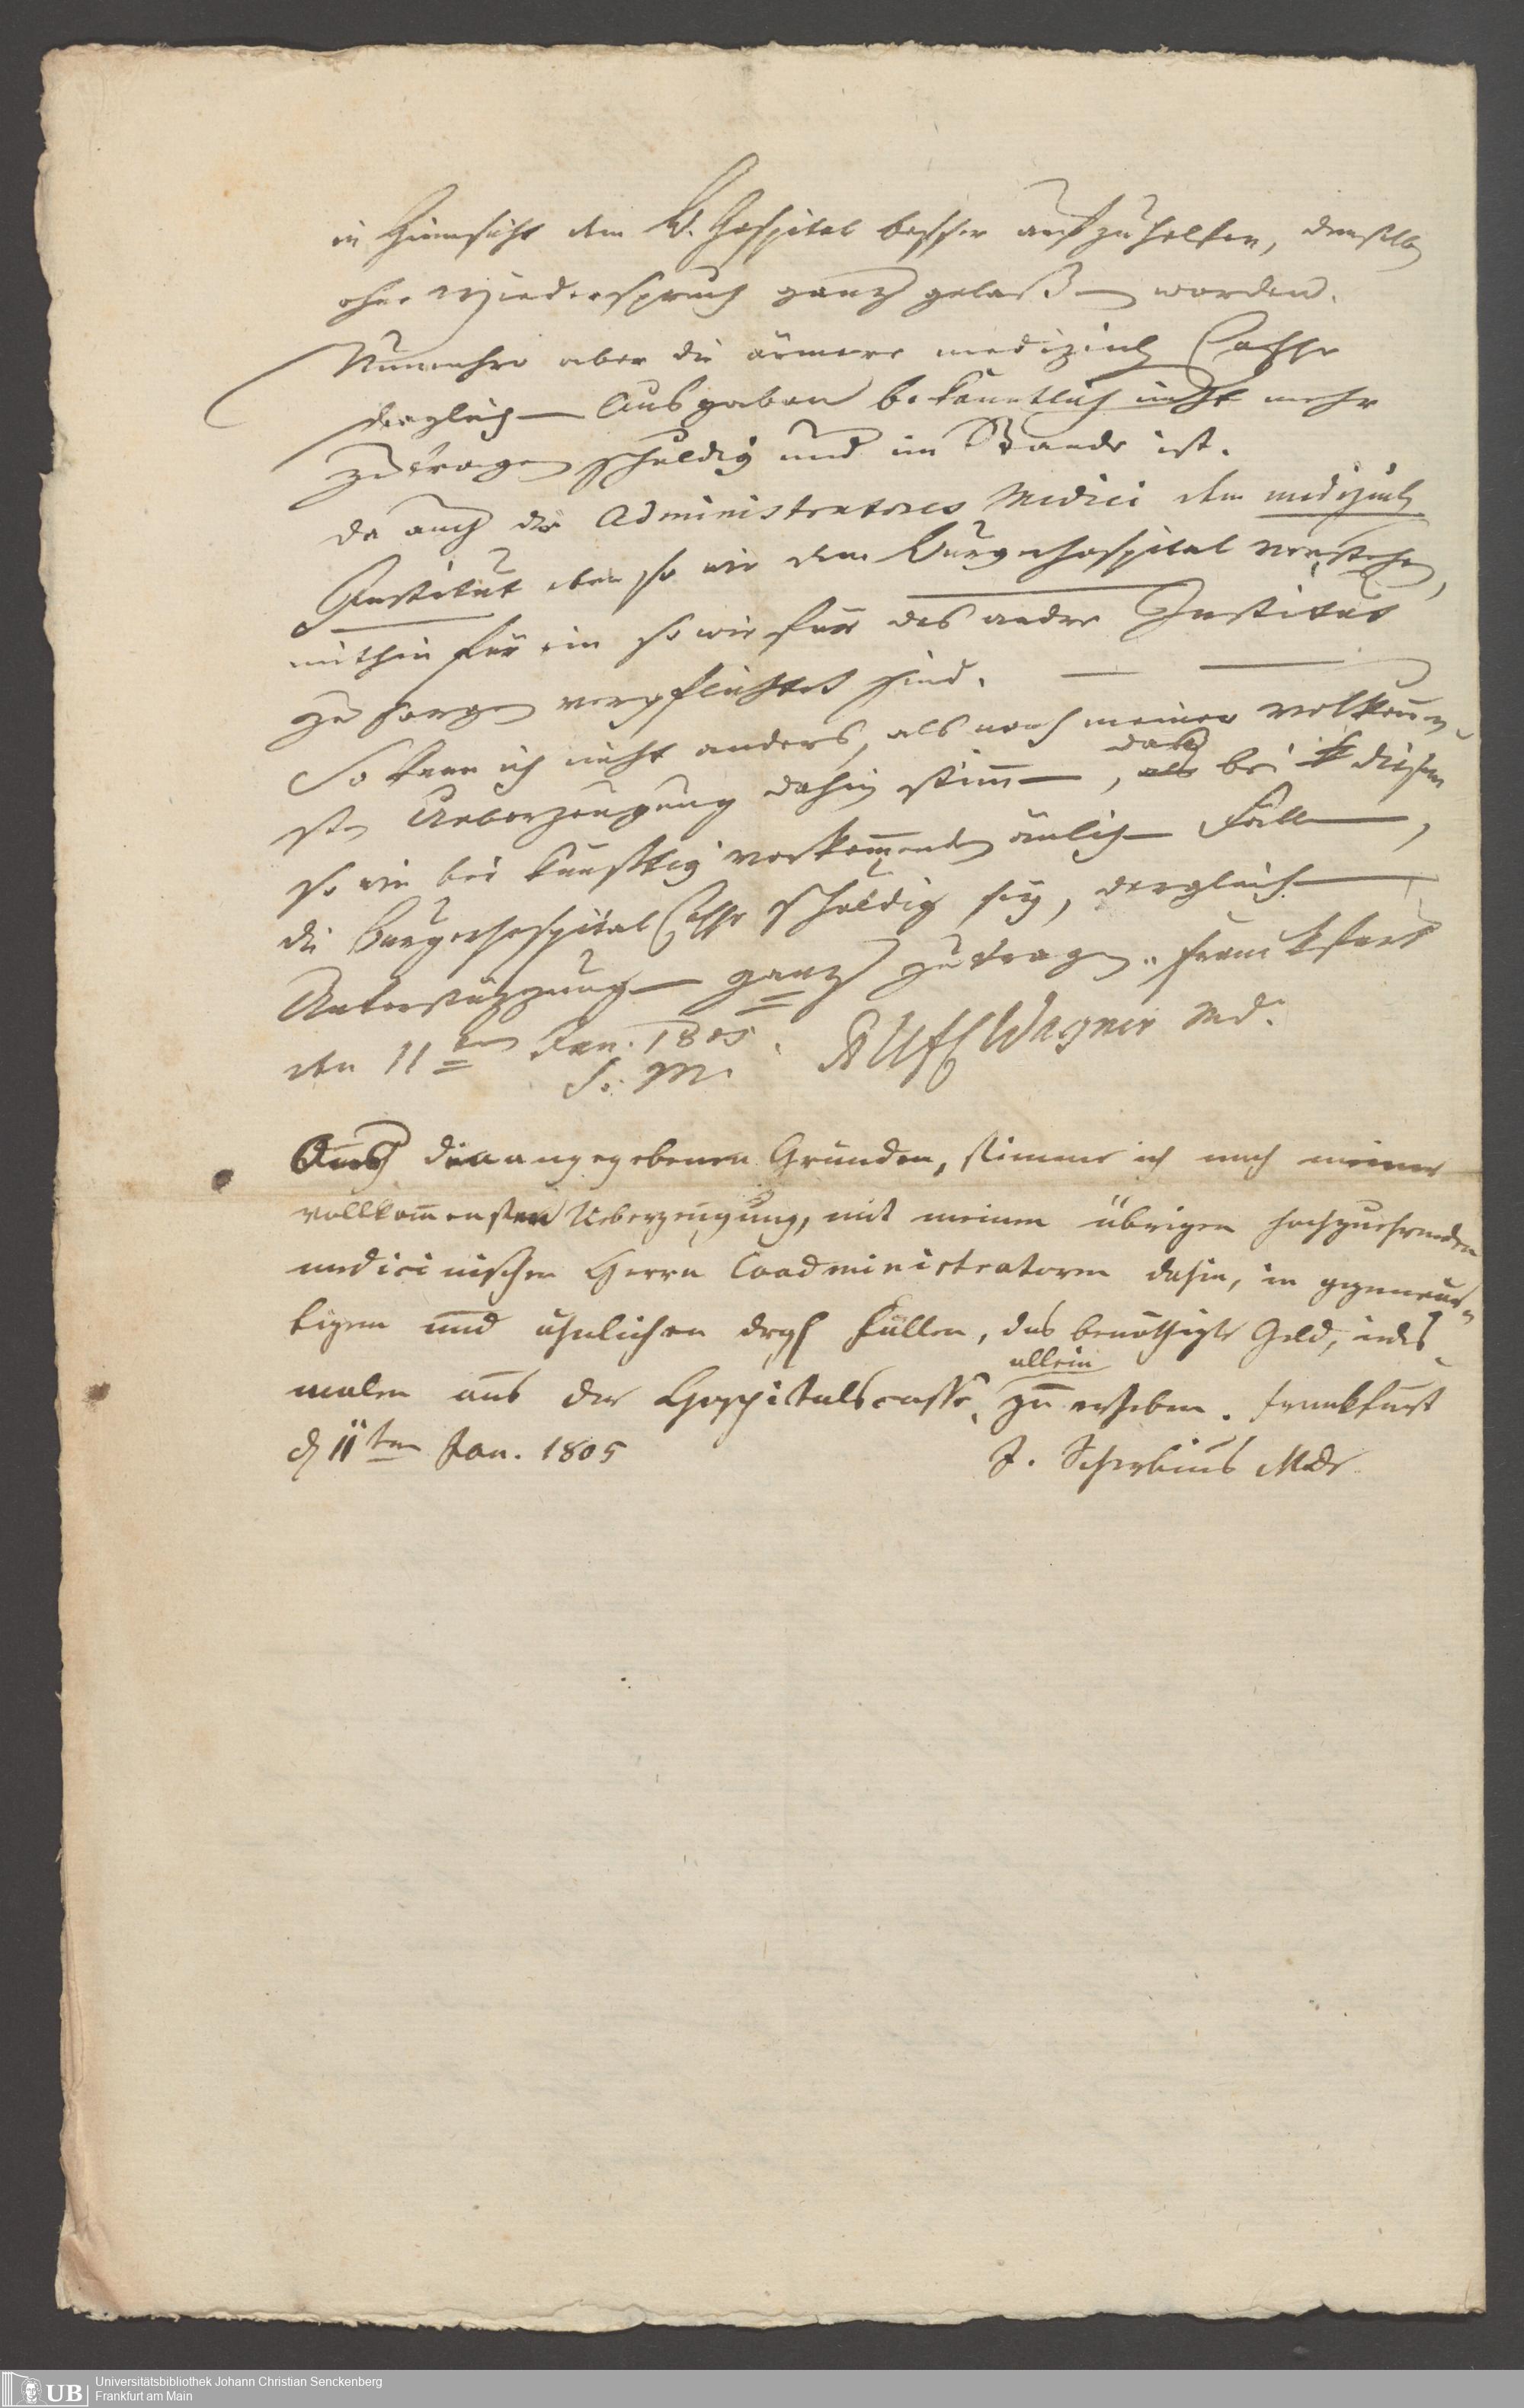 in Hinnsicht dem B. Hospital besser aufzuhelfen, demselb
ohne Wiederspruch ganz gelaßen worden.
Nunmehro aber die ärmere medizinh Casse
dergleich Ausgaben bekanntlich nicht mehr
zutragen schuldig und im Stande ist.
da auch die Administratores Medici dem medizinh
Institut eben so wie dem Bürgerhospital vorstehen,
mithin für ein so wie für das andre Institut
zu sorgen verpflichtet sind.
So kann ich nicht anders, als nach meiner vollkomm-
sten Ueberzeugung dahin stimmen, als daß bei diesem
so wie bei künftig vorkommenden änlichen Fällen,
die Bürgerhospital Casse schuldig sey, dergleichen
Unterstüzzungen ganz zutragen. Franckfurt
den 11ten Jan. 1805. Wagner Md.
S. M.
Aus den angegebenen Gründen, stimme ich nach meiner
vollkommensten Ueberzeugung, mit meinen übrigen hochzuehrenden
medicinischen Herrn Coadministratoren dahin, in gegenwär-
tigen und ähnlichen drgl Fällen, das benöthigte Geld, jedes-
malen aus der Hospitalscasse allein zu erheben. Frankfurt
d 11ten Jan. 1805 J. Scherbius MDr.
UB Universitätsbibliothek Johann Christian Senckenberg
Frankfurt am Main